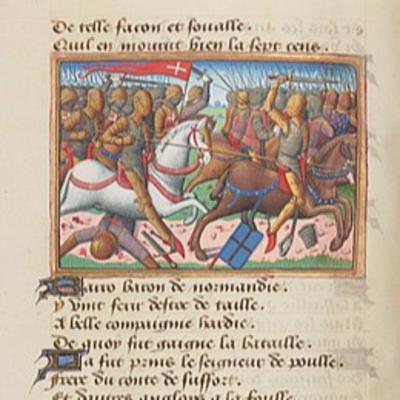 De telle facon et foualle.
Quil en mourut bien la sept cens.
Sacro baron de normandie.
y vint ferir destoc de taille.
A belle compaignie hardie.
De quoy fut gaigne la bataille.
La fut prins le seigneur de poulle.
frere du conte de suffort.
Et diuers anglois a la foulle